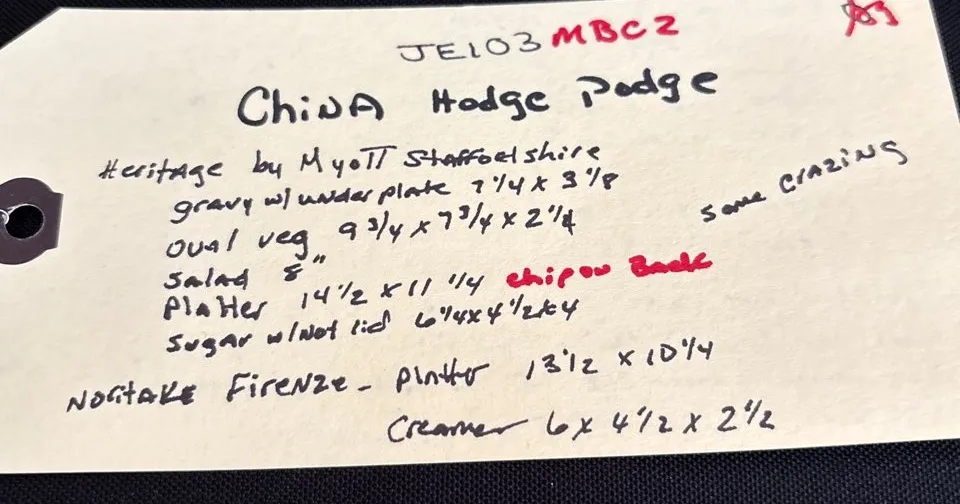 JE103 MBC2
China Hodge Podge
Heritage by Myott Staffoelshire
gravy w/ underplate 7 1/4 x 3 1/8
oval veg 9 3/4 x 7 3/4 x 2 1/4
some crazing
salad 8"
Platter 14 1/2 x 11 1/4 chip on Back
sugar w/Not lid 6 1/4 x 4 1/2 x 4
Noritake Firenze - platter 13 1/2 x 10 1/4
Creamer 6 x 4 1/2 x 2 1/2